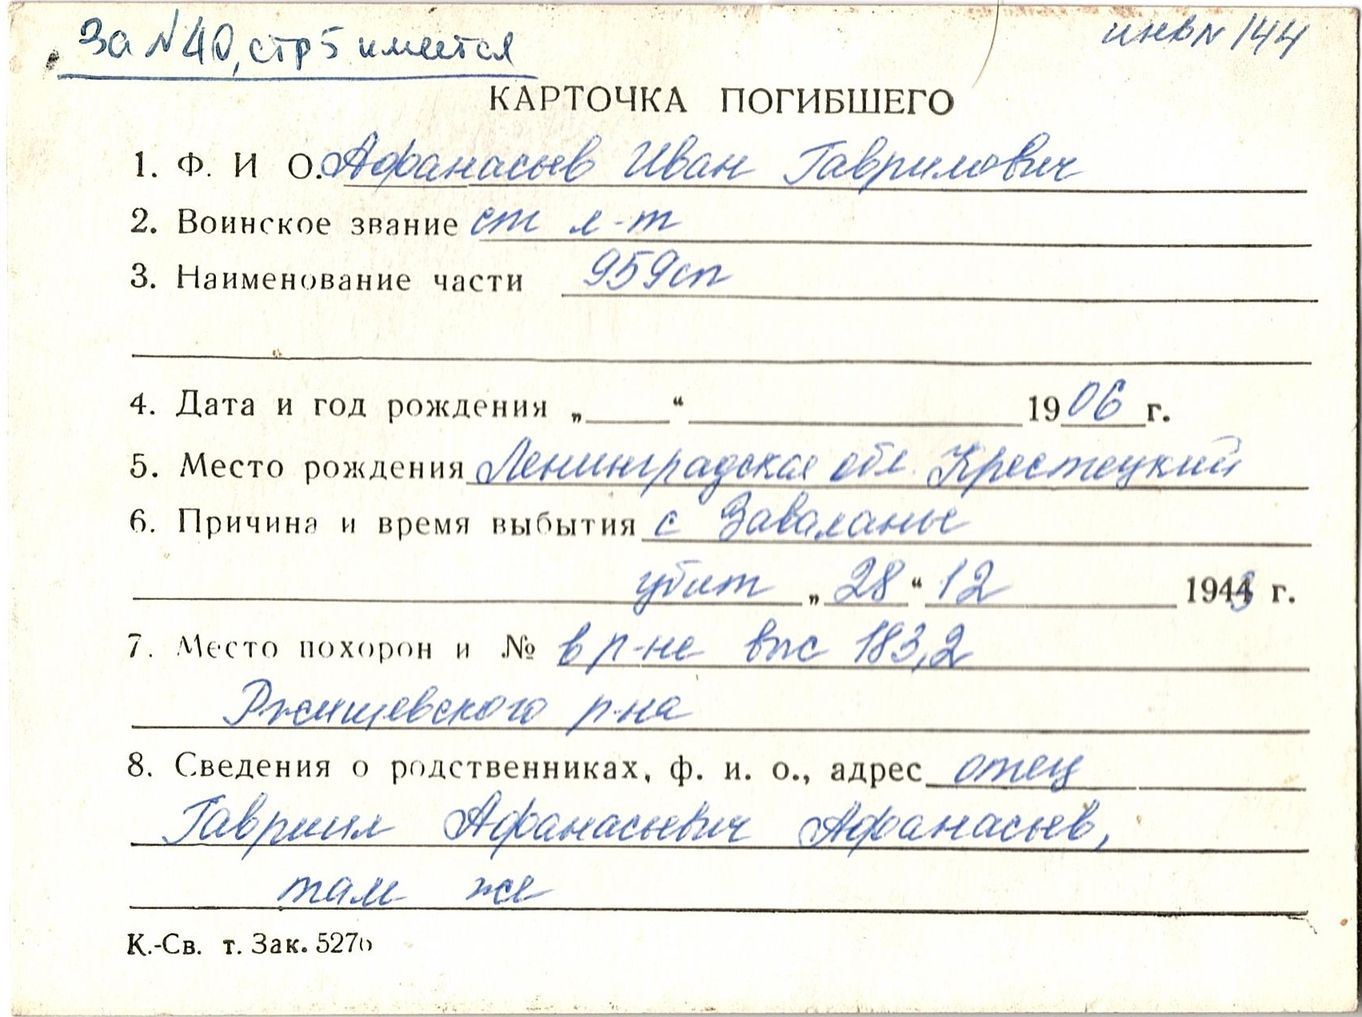 За №40, стр 5 имеется
инв № 144
КАРТОЧКА ПОГИБШЕГО
1. Ф. И О. Афанасьев Иван Гаврилович
2. Воинское звание ст л-т
3. Наименование части 959сп
4. Дата и год рождения „ “ 1906 г.
5. Место рождения Ленинградская обл. Крестецкий
6. Причина и время выбытия с
убит „28“ 12 1943 г.
7. Место похорон и № в р-не выс 183,2
Ржищевского р-на
8. Сведения о родственниках, ф. и. о., адрес отец
Гавриил Афанасьевич Афанасьев,
там же
К.-Св. т. Зак. 5270